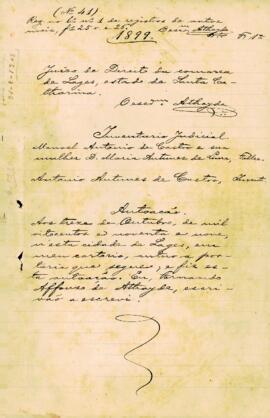 (Nº 41)
Reg. no lº nº 1 de registros de autos
1899.
Juizo de Direito da comarca
de Lages, estado de Santa Ca-
tharina.
Athayde
Inventario Judicial
Manoel Antonio de Castro e sua
mulher D. Maria Antunes de
Antonio Antunes de Castro, Invent.
Autoação.
Aos treze de Outubro, de mil
oitocentos e noventa e nove,
n'esta cidade de Lages, em
meu cartorio, autuo a por-
taria que segue, e fiz es-
ta autoação. Eu, Fernando
Affonso de Athayde, escri-
vão a escrevi.